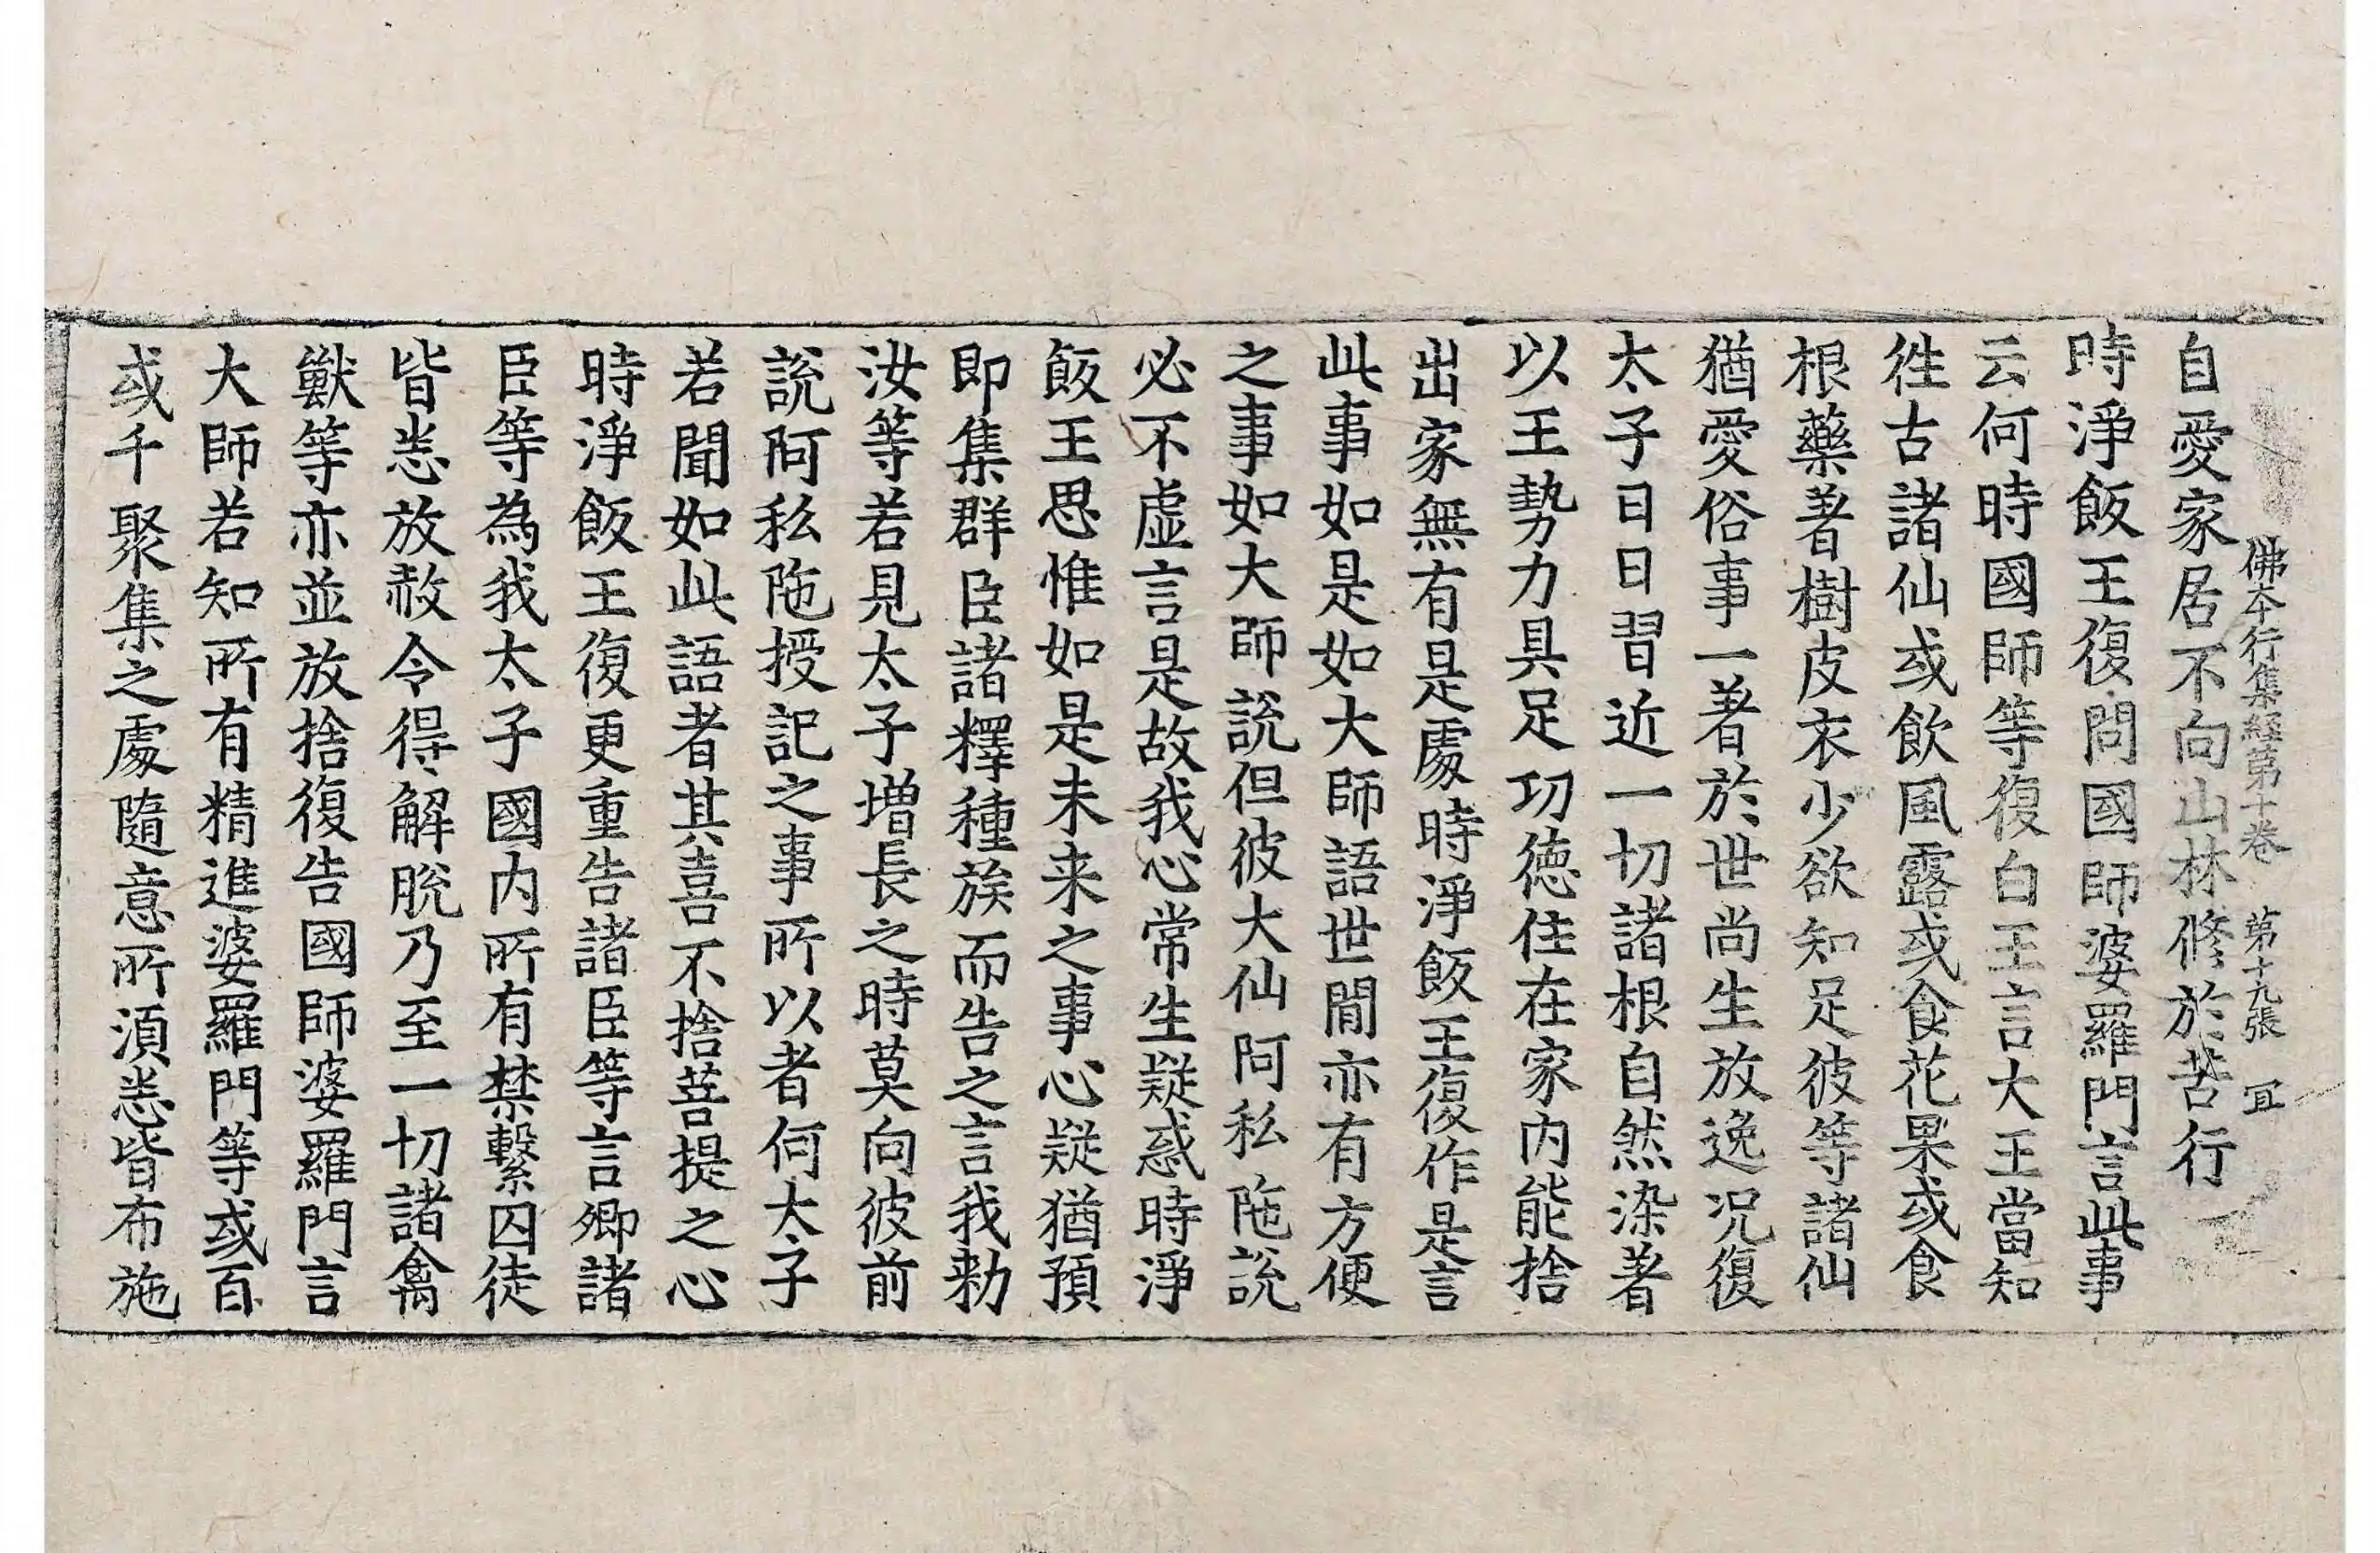 佛本行集經第十卷 第十九張 冝
自愛家居不向山林修於苦行
時淨飯王復問國師婆羅門言此事
云何時國師等復白王言大王當知
徃古諸仙或飲風露或食花果或食
根藥著樹皮衣少欲知足彼等諸仙
猶愛俗事一著於世尚生放逸况復
太子日日習近一切諸根自然染著
以王勢力具足功徳住在家内能捨
出家無有是處時淨飯王復作是言
此事如是如大師語世間亦有方便
之事如大師說但彼大仙阿私陁說
必不虛言是故我心常生疑惑時淨
飯王思惟如是未来之事心疑猶預
即集群臣諸釋種族而告之言我勑
汝等若見太子増長之時莫向彼前
說阿私陁授記之事所以者何太子
若聞如此語者其喜不捨菩提之心
時淨飯王復更重告諸臣等言卿諸
臣等為我太子國内所有禁繫囚徒
皆悉放赦令得解脫乃至一切諸禽
獸等亦並放捨復告國師婆羅門言
大師若知所有精進婆羅門等或百
或千聚集之處隨意所湏悉皆布施